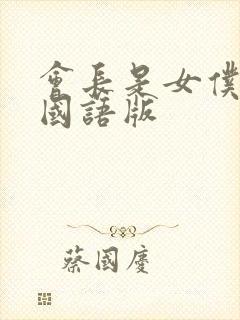 會長是女僕
國語版
蔡國慶